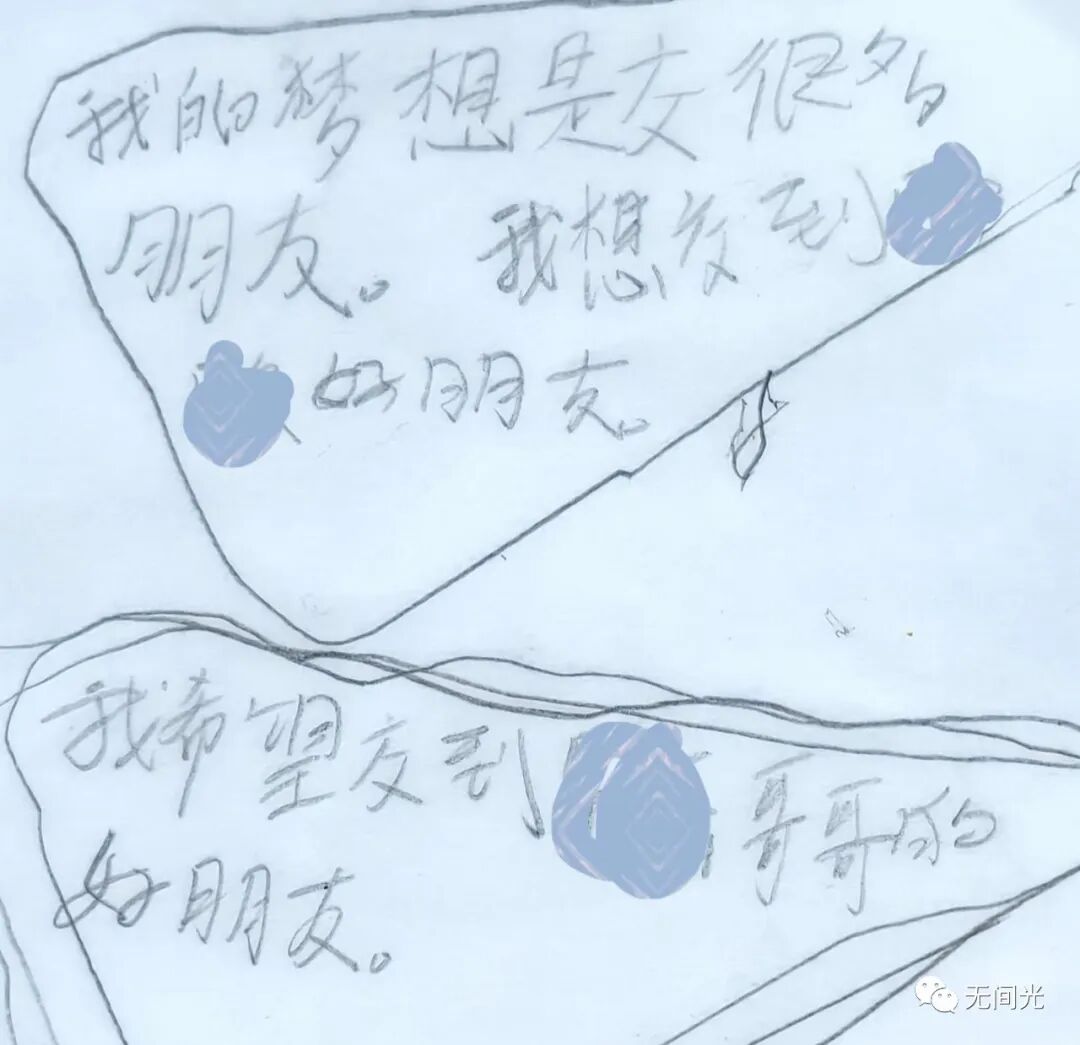 我的梦想是交很多
朋友。 我想交到
好朋友。
我希望交到 哥哥的
好朋友。
无间光